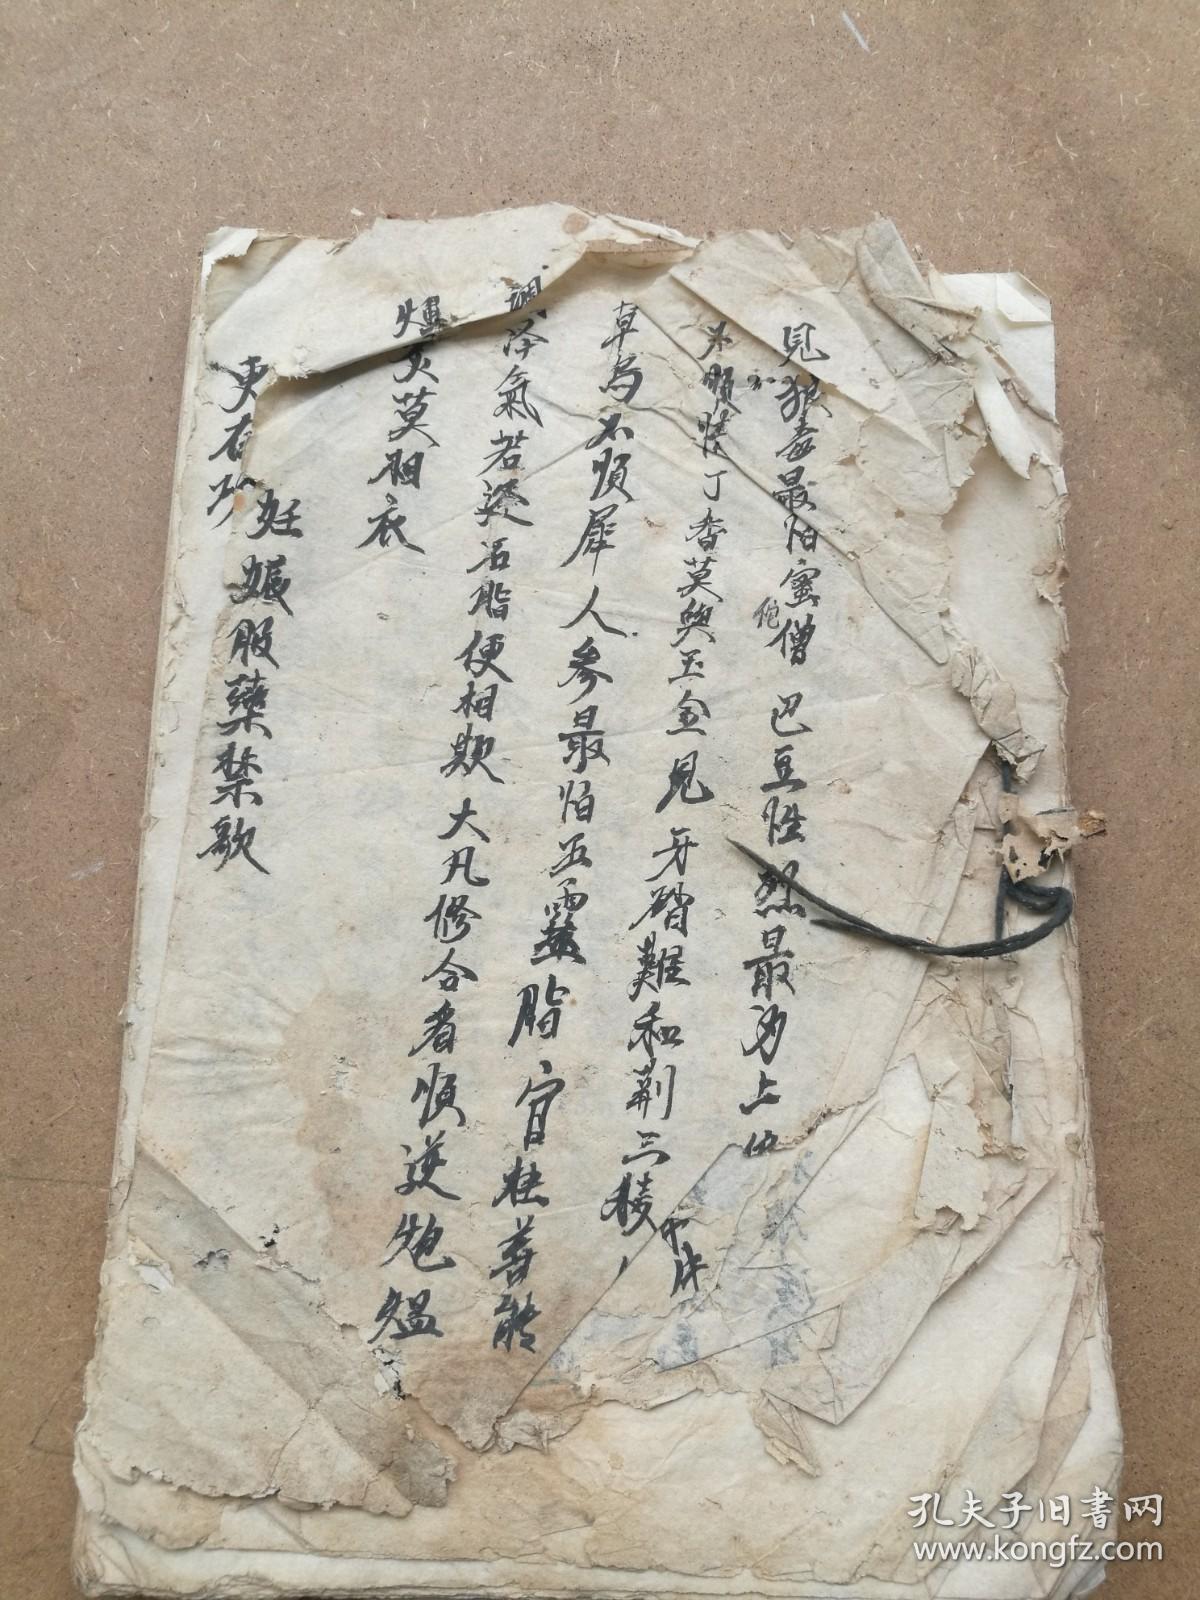 見狼毒最怕蜜僧 巴豆性烈最为上
不順情丁香莫與玉金見牙硝難和荆三棱
草烏不順犀人參最怕五靈脂官桂善能
調冷氣若逢石脂便相欺大凡修合看順逆炮煴
爁炙莫相衣
妊娠服藥禁歌
更有
孔夫子旧书网
www.kongfz.com